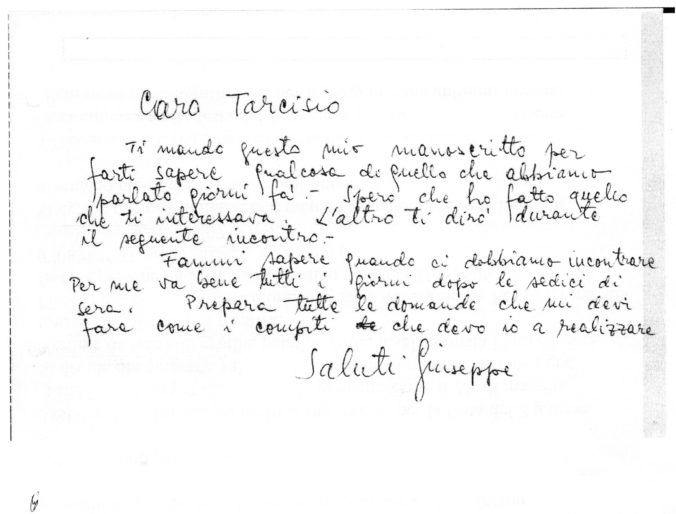 Caro Tarcisio
Ti mando questo mio manoscritto per
farti sapere qualcosa di quello che abbiamo
parlato giorni fà.- Spero che ho fatto quello
che ti interessava. L'altro ti dirò durante
il seguente incontro.-
Fammi sapere quando ci dobbiamo incontrare
Per me va bene tutti i giorni dopo le sedici di
sera. Prepara tutte le domande che mi devi
fare come i compiti che devo io a realizzare
Saluti Giuseppe